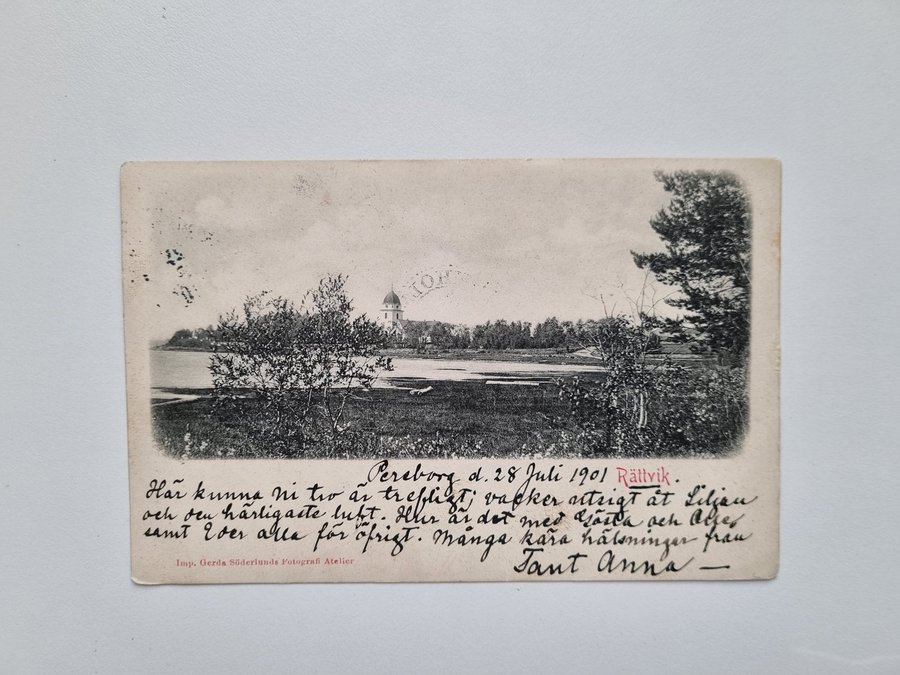 HOLM
Persborg d. 28 Juli 1901 Rättvik.
Här kunna Ni tro är trefligt; vacker utsigt åt Siljan
och den härligaste luft. Hur är det med Gösta och
samt Eder alla för öfrigt. Många kära hälsningar från
Tant Anna —
Imp. Gerda Söderlunds Fotografi Atelier